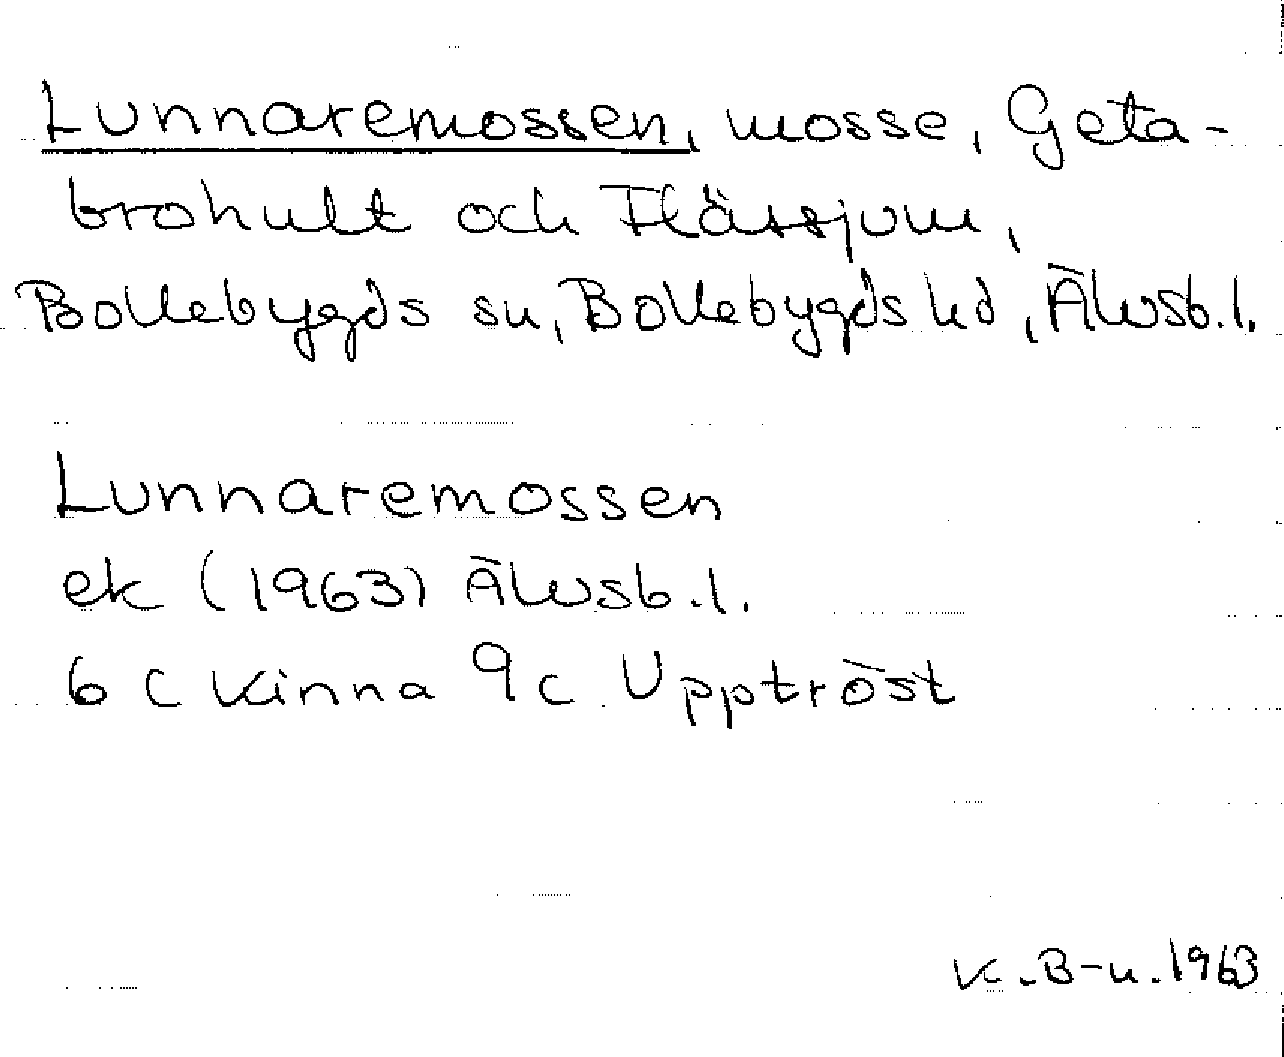 Lunnaremossen, mosse, Geta-
brohult och Flässjum,
Bollebygds sn, Bollebygds hd, Älvsb.l.
Lunnaremossen
ek (1963) Älvsb.l.
6 C Kinna 9c Upptröst
K.B-n.1963